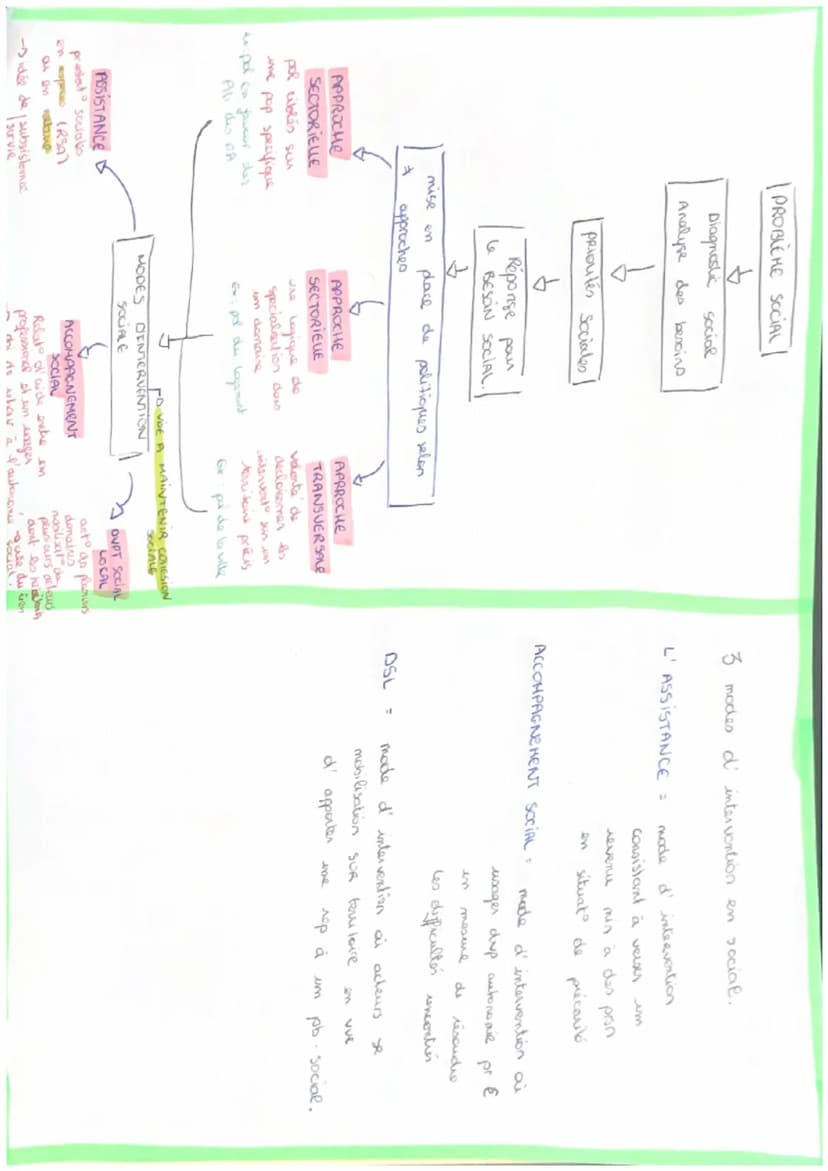 PROBLÈME SOCIAL
Diagnostic social
Analyse des besoins
priorités Sociales
Réponse pour
le BESOIN SOCIAL.
mise en place de politiques selon
≠ approches
APPROCHE
SECTORIELLE
pol ciblés sur
une pop spécifique
ex: pol en faveur des
PA
APPROCHE
SECTORIELLE
une logique de
spécialisation dans
un domaine
ex: pol du logement
APPROCHE
TRANSVERSALE
volonté de
les
sur un
territoire précis
Ex: pol de la ville
→ VISE A MAINTENIR COHESION
SOCIALE
MODES D'INTERVENTION
SOCIALE
ASSISTANCE
prestat° sociales
en espèces (RSA)
ou en nature
→ idée de subsistance
survie
ACCOMPAGNEMENT
SOCIAL
Relat° d'aide entre un
professionnel et un usager
à l'autonomie social.
DVPT SOCIAL
LOCAL
act° ds plusieurs
domaines
mobilisat° de
plusieurs acteurs
dont les
du lien
3 modes d'intervention en social.
L'ASSISTANCE = mode d'intervention
consistant à verser un
revenu min à des prsn
en situat° de précarité
ACCOMPAGNEMENT SOCIAL = mode d'intervention où
usager dvp autonomie pr ê
en mesure de résoudre
les difficultés rencontrées
DSL = mode d'intervention où acteurs se
mobilisation sur territoire en vue
d'apporter une rep à un pb social.